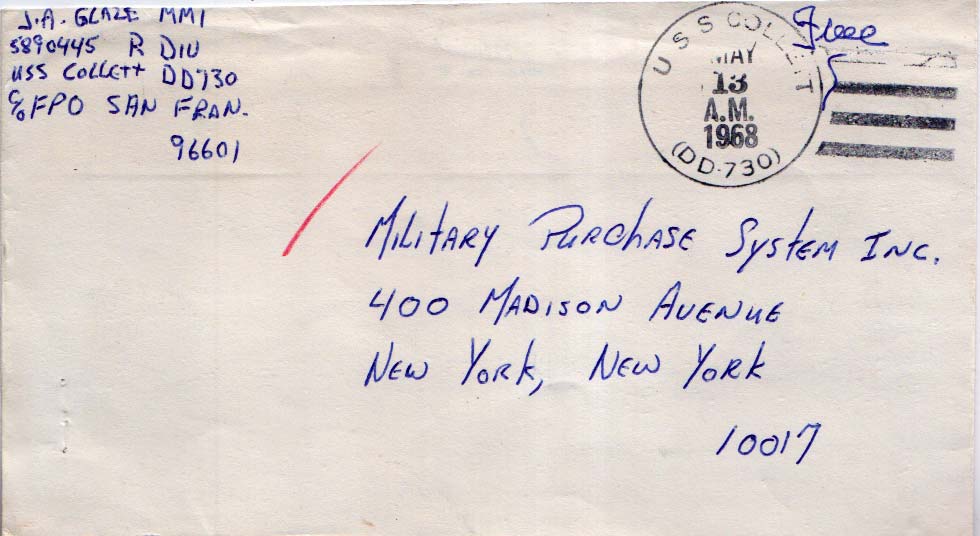 J.A. GLAZE MM1
5890445 R DIV
USS COLLETT DD730
C/O FPO SAN FRAN.
96601
USS COLLETT
MAY
13
A.M.
1968
(DD-730)
Free
MILITARY PURCHASE SYSTEM INC.
400 MADISON AVENUE
NEW YORK, NEW YORK
10017